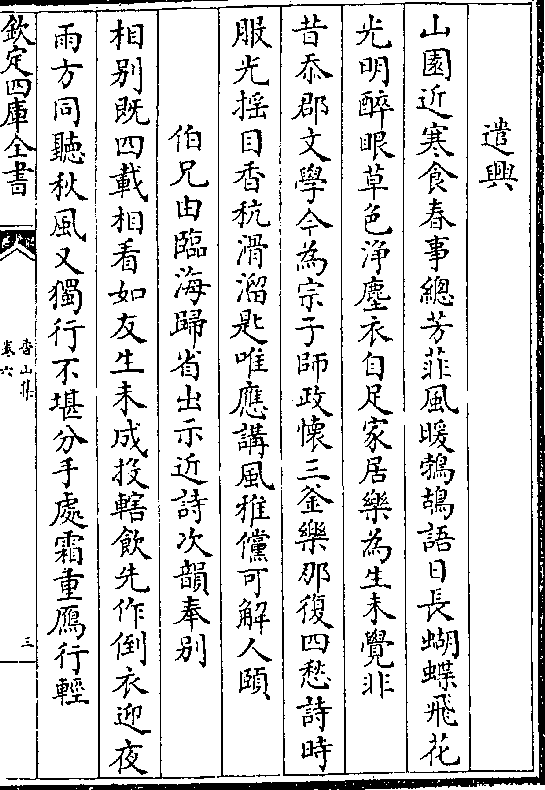 遣興
山園近寒食春事總芳菲風暖鵓鴣語日長蝴蝶飛花
光明醉眼草色浄塵衣自足家居樂為生未覺非
昔忝郡文學今為宗子師政懷三釜樂那復四愁詩時
服光揺目香秔滑溜匙唯應講風雅儻可解人頤
伯兄由臨海歸省出示近詩次韻奉别
相别既四載相看如友生未成投轄飲先作倒衣迎夜
雨方同聽秋風又獨行不堪分手處霜重鴈行輕
欽定四庫全書
香山集
卷六
三